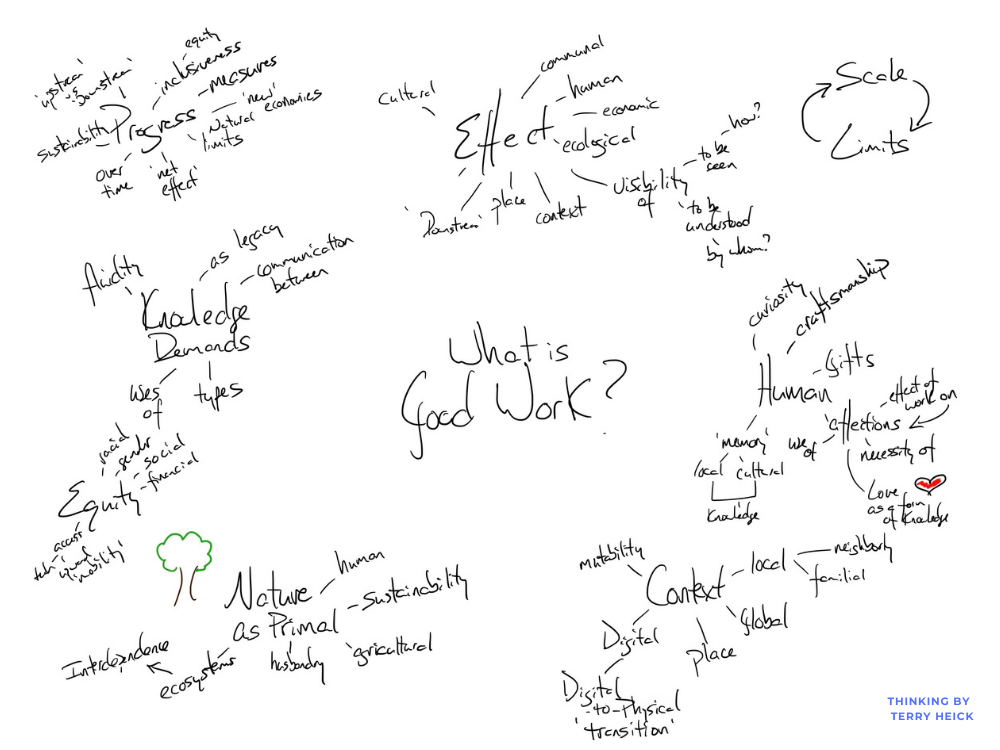 equity
inclusiveness
measures
'upstream'
up vs
Downstream'
Progress
'new'
Natural economies
limits
Sustainability
over
time
'net
effect'
Cultural
communal
human
economic
ecological
Effect
'Downstream'
place
context
visibility
of
to be
seen
how?
to be
understood
by whom?
Scale
Limits
fluidity
as legacy
communication
between
Knowledge
Demands
uses
of
types
What is
Good Work?
curiosity
craftsmanship
Gifts
Human
affections
effect of
work on
necessity of
use
of
Love
as a form
of Knowledge
'memory'
local
cultural
Knowledge
racial
gender
social
financial
Equity
access
upward
mobility'
Nature
as Primal
human
Sustainability
agricultural
husbandry
ecosystems
Interdependence
mutability
Context
local
neighborly
familial
global
place
Digital
Digital
-to-Physical
'transition'
THINKING BY
TERRY HEICK